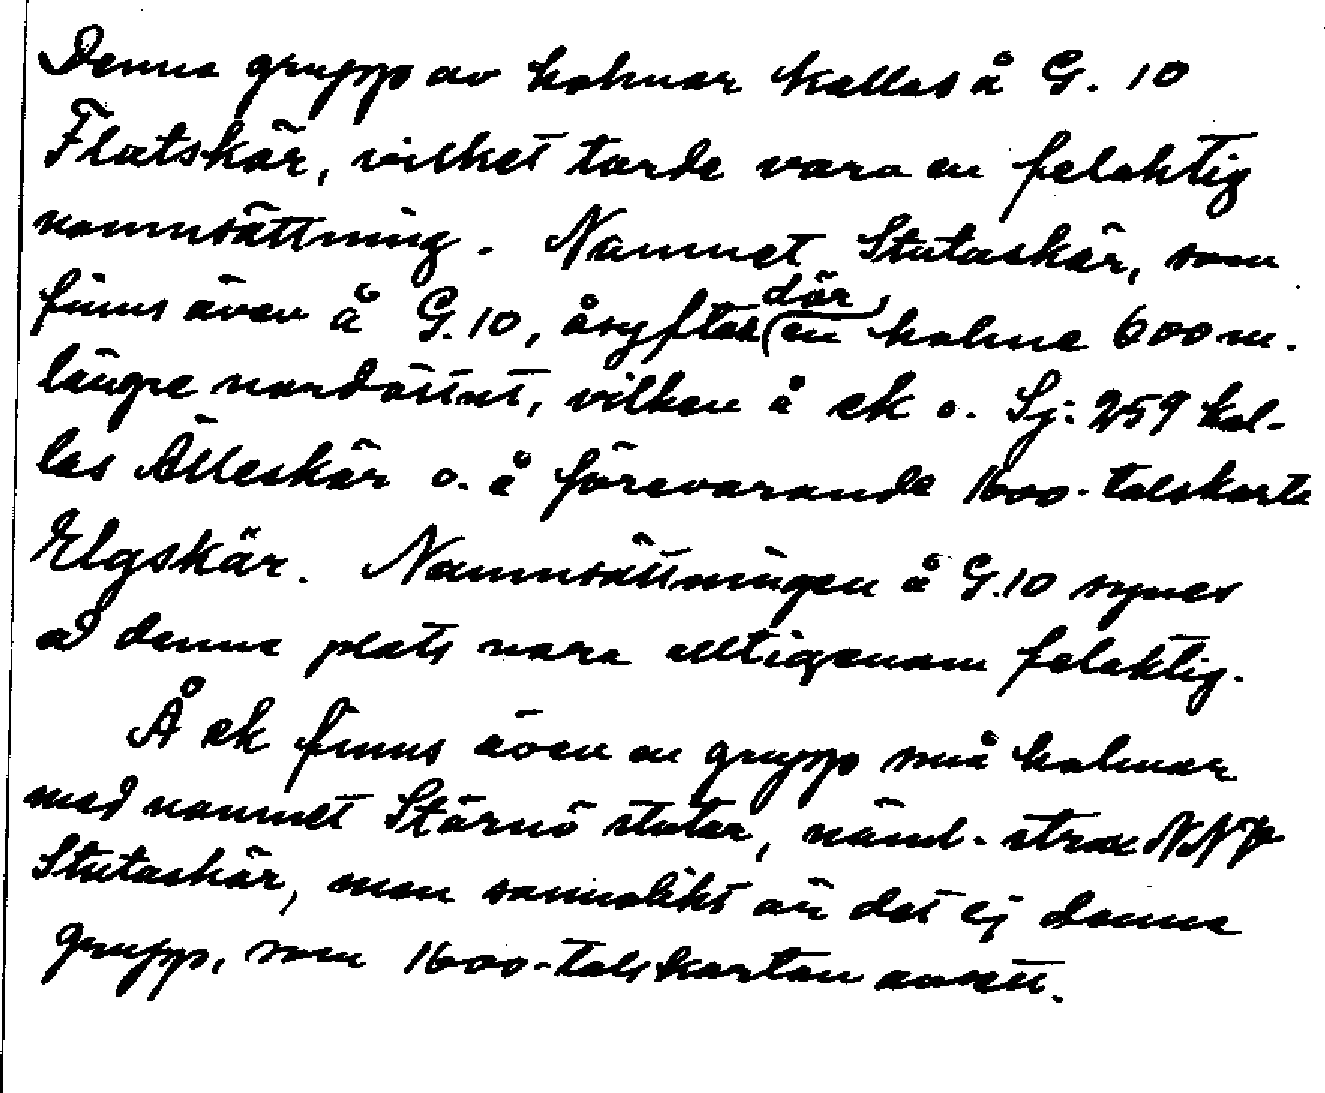 Denna grupp av holmar kallas å G. 10
Flatskär, vilket torde vara en felaktig
namnsättning. Namnet Stutaskär, som
finns även å G. 10, åsyftar där en holme 600 m.
längre nordösut, vilken å ek o. Sj: 259 kal-
las Älleskär o. å förevarande 1600-talskarta
Elgskär. Namnsättningen å G. 10 synes
å denna plats vara alltigenom felaktig.
Å ek finns även en grupp små holmar
med namnet Stärnö stutar, näml. strax NNV
Stutaskär, men sannolikt är det ej denna
grupp, som 1600-talskartan avsett.